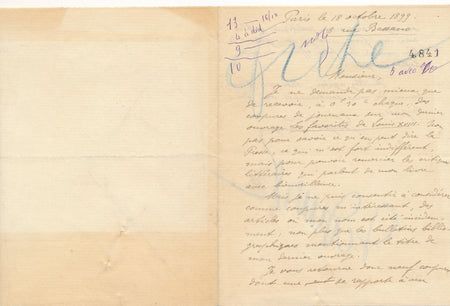 13 16/10
4 a déd
9
10
Paris le 18 octobre 1899.
rue Bassano
4841
Monsieur,
Je ne demande pas mieux que
de recevoir, à 0f 30c chaque, des
coupures de journaux sur mon dernier
ouvrage Les favorites de Louis XVIII. Non
pas pour savoir ce qu'en peut dire la
Presse, ce qui m'est fort indifférent,
mais pour pouvoir remercier les critiques
littéraires qui parlent de mon livre
avec bienveillance.
Mais je ne puis consentir à considérer
comme coupures m'intéressant, des
articles où mon nom est cité incidem-
ment, non plus que les bulletins biblio-
graphiques mentionnant le titre de
mon dernier ouvrage.
Je vous retourne donc neuf coupures
dont une seule se rapporte à un